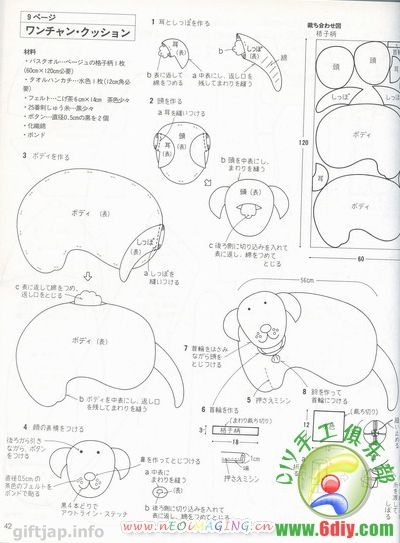 9ページ
ワンチャン・クッション
材料
・バスタオル…ベージュの格子柄1枚
(60cm×120cm必要)
・タオルハンカチ…水色1枚(12cm角必
要)
・フェルト…こげ茶6cm×14cm 茶色少々
・25番刺しゅう糸…黒少々
・ボタン…直径0.5cmの黒を2個
・化繊綿
・ボンド
1 耳としっぽを作る
耳
(表)
b 表に返して
綿をつめる
しっぽ
(表)
綿
a 中表にし、返し口を
残してまわりを縫う
2 頭を作る
a 耳を縫いつける
頭
(表)
耳
(表)
b 頭を中表にし、
まわりを縫う
頭
(表)
c 後ろ側に切り込みを入れて
表に返し、綿をつめて
とじる
裁ち合わせ図
格子柄
頭
頭
しっぽ
耳
ボディ
ボディ
120
60
3 ボディを作る
ボディ (表)
しっぽ
(表)
a しっぽを
縫いつける
c 表に返して綿をつめ、
返し口をとじる
ボディ (表)
b ボディを中表にし、返し口
を残してまわりを縫う
4 顔の表情をつける
後ろから引き
ながら、ボタン
をつける
直径0.5cmの
茶色のフェルトを
ボンドで貼る
黒4本どりで
アウトライン・ステッチ
5 鼻を作ってとじつける
a 中表に
まわりを縫う
b 後ろ側に切り込みを入れて
表に返し、綿をつめてとじる
56cm
7 首輪をはさみ
ながら頭を
とじつける
5 押さえミシン
6 首輪を作る
(まわり裁ち切り)
格子柄
3
18
1cm
端
押さえミシン
8 鈴を作って
首輪につける
(裁ち切り)
5
5
42
DIY手工俱乐部
giftjap.info
www.nEOiMAGING.cn
www.6diy.com